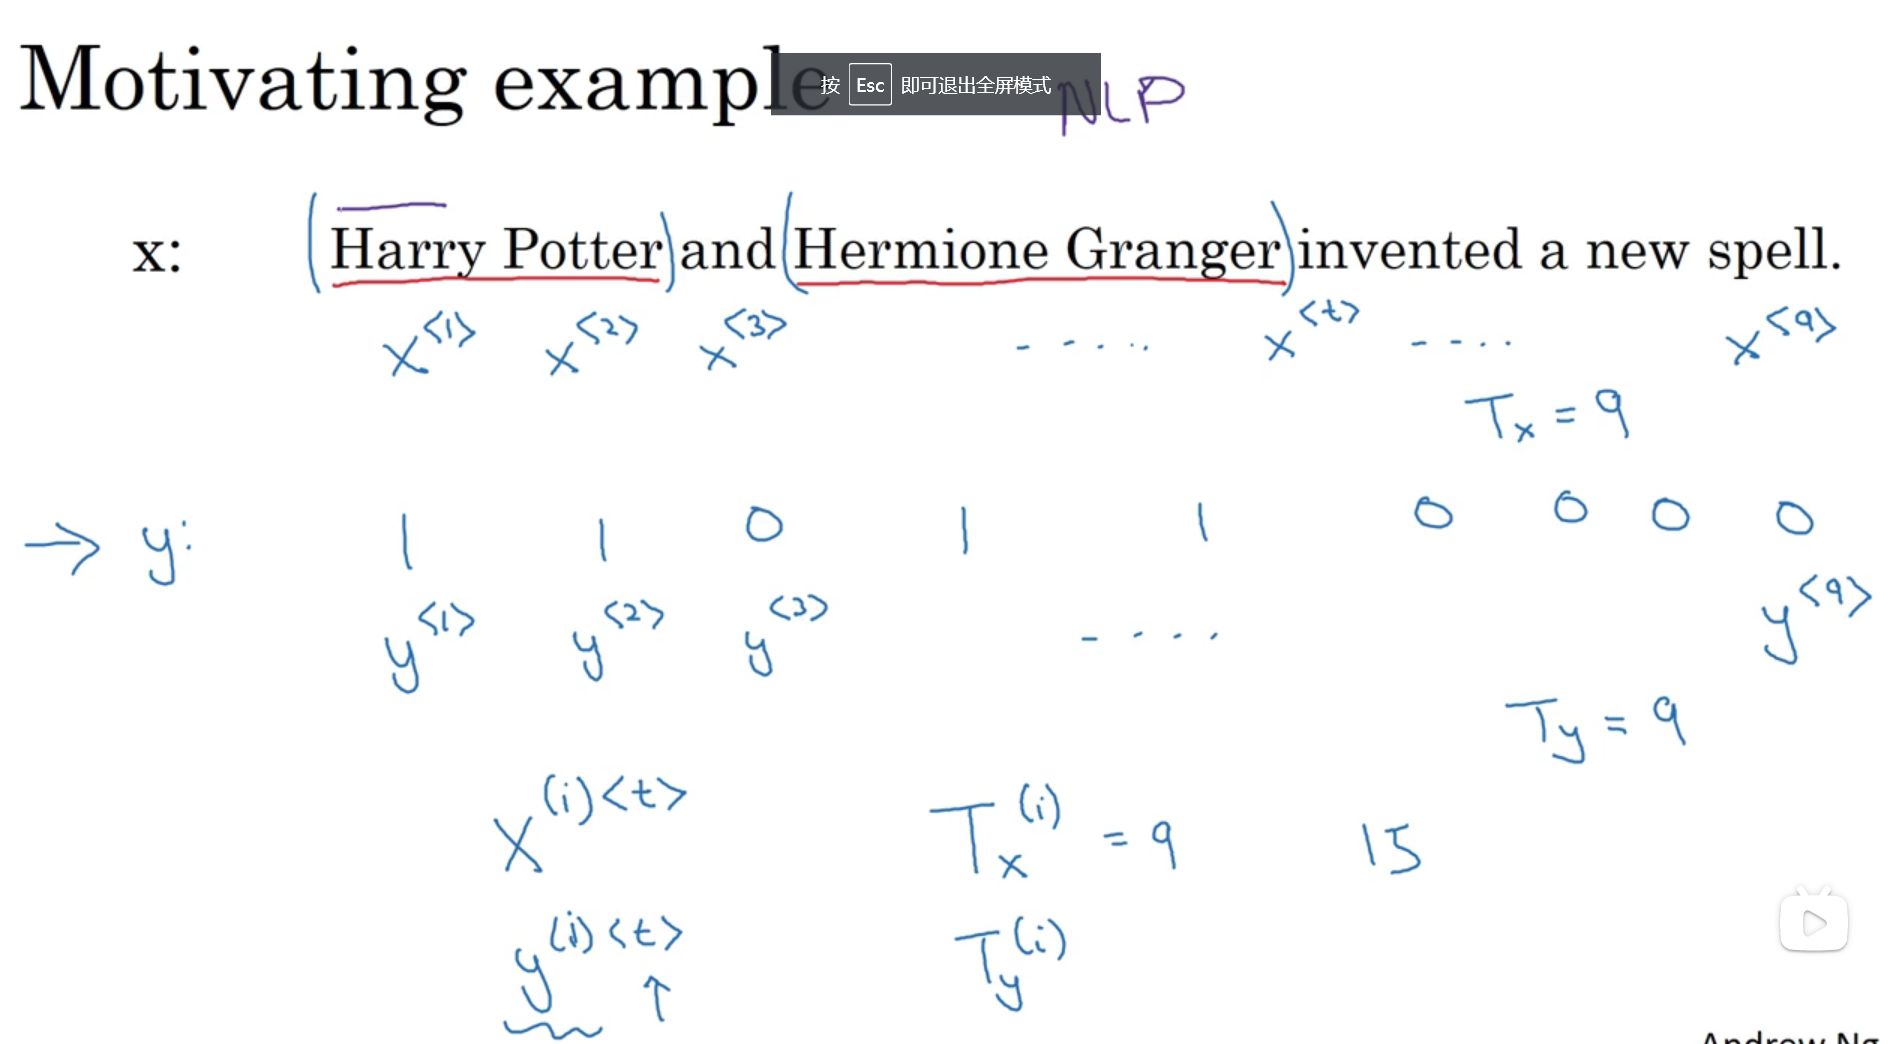 Motivating example
按 Esc 即可退出全屏模式
NLP
x: (Harry Potter) and (Hermione Granger) invented a new spell.
x<1> x<2> x<3> - - . . . x<t> - - . . x<9>
Tx = 9
→ y: 1 1 0 1 1 0 0 0 0
y<1> y<2> y<3> - . . . y<9>
Ty = 9
X(i)<t> Tx(i) = 9 15
y(i)<t> Ty(i)
↑
Andrew Ng